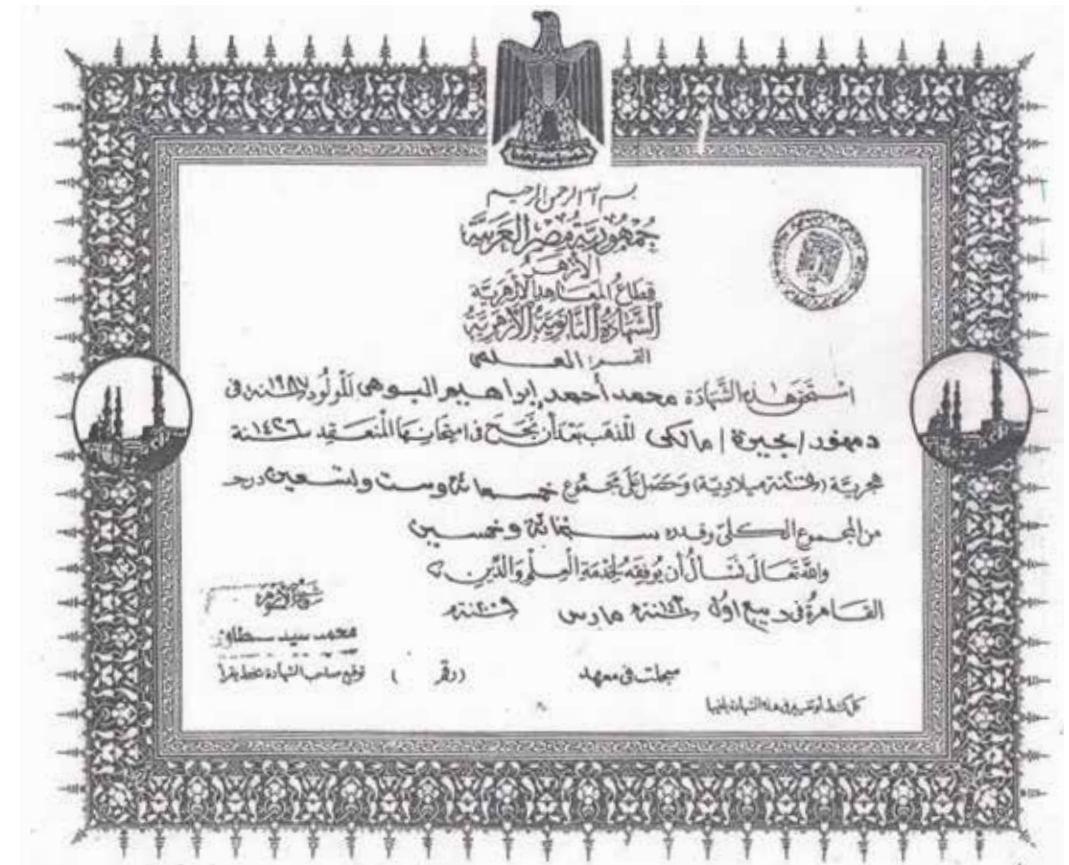 بسم الله الرحمن الرحيم
جُمْهُورِيَّة مِصْر العَرَبِيَّة
الأزهر
قطاع المعاهد الأزهرية
الشهادة الثانوية الأزهرية
القسم: العلمى
استحق هذه الشهادة محمد أحمد إبراهيم البوهى المولود سنة ١٩٨٧ فى
دمنهور / بحيرة / مالكى المذهب بعد أن نجح فى امتحانها المنعقد سنة ١٤٢٦
هجرية ( ميلادية) وحصل على مجموع خمسمائة وست وتسعين درجة
من المجموع الكلى وقدره ستمائة وخمسين
والله تعالى نسأل أن يوفقه لخدمة العلم والدين
القاهرة فى ربيع اول سنة مارس سنة
شيخ الأزهر
محمد سيد طنطاوى
سجلت فى معهد (رقم ) توقيع صاحب الشهادة بخط يقرأ
كل كشط أو تغيير فى هذه الشهادة يلغيها